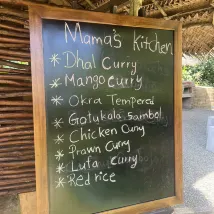 Mama's Kitchen
* Dhal Curry
* Mango Curry
* Okra Tempered
* Gotukala Sambol
* Chicken Curry
* Prawn Curry
* Lufa curry
* Red rice